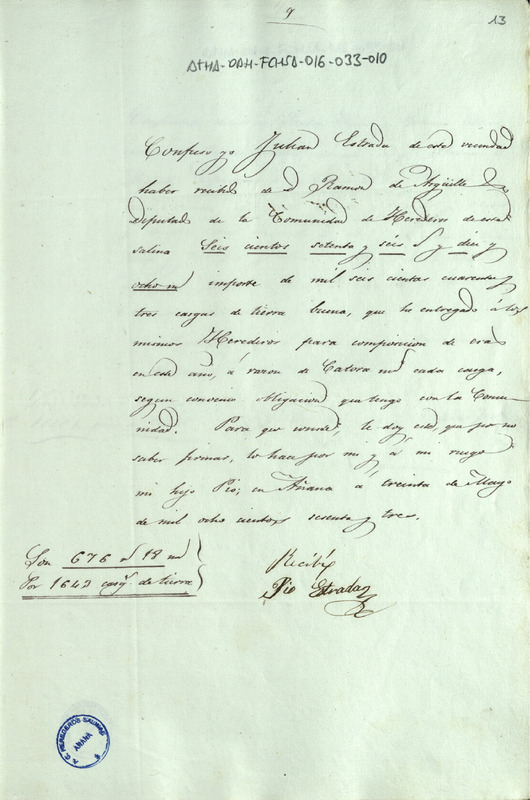 9
13
ATHA-DAH-FCHSA-016-033-010
Confieso yo Julian Estrada de esta vecindad
haber recibido de d Ramon de Argüelle
Diputado de la Comunidad de Herederos de esta
salina Seis cientos setenta y séis r y diez y
ocho m importe de mil seis cientas cuarenta y
tres cargas de tierra buena, que he entregado á los
mismos Herederos para composicion de eras
en este año, á razon de Catorce mrs cada carga,
segun convenio obligacion que tengo con la Comu-
nidad. Para que conste, le doy este, que por no
saber firmar, lo hace por mi y á mi ruego
mi hijo Pio; en Añana á treinta de Mayo
de mil ocho cientos sesenta y tres.
Son 676 r 18 m
Por 1643 cargs de tierra
Recibí
Pio Estrada
A.C. HEREDEROS SALINAS
AÑANA